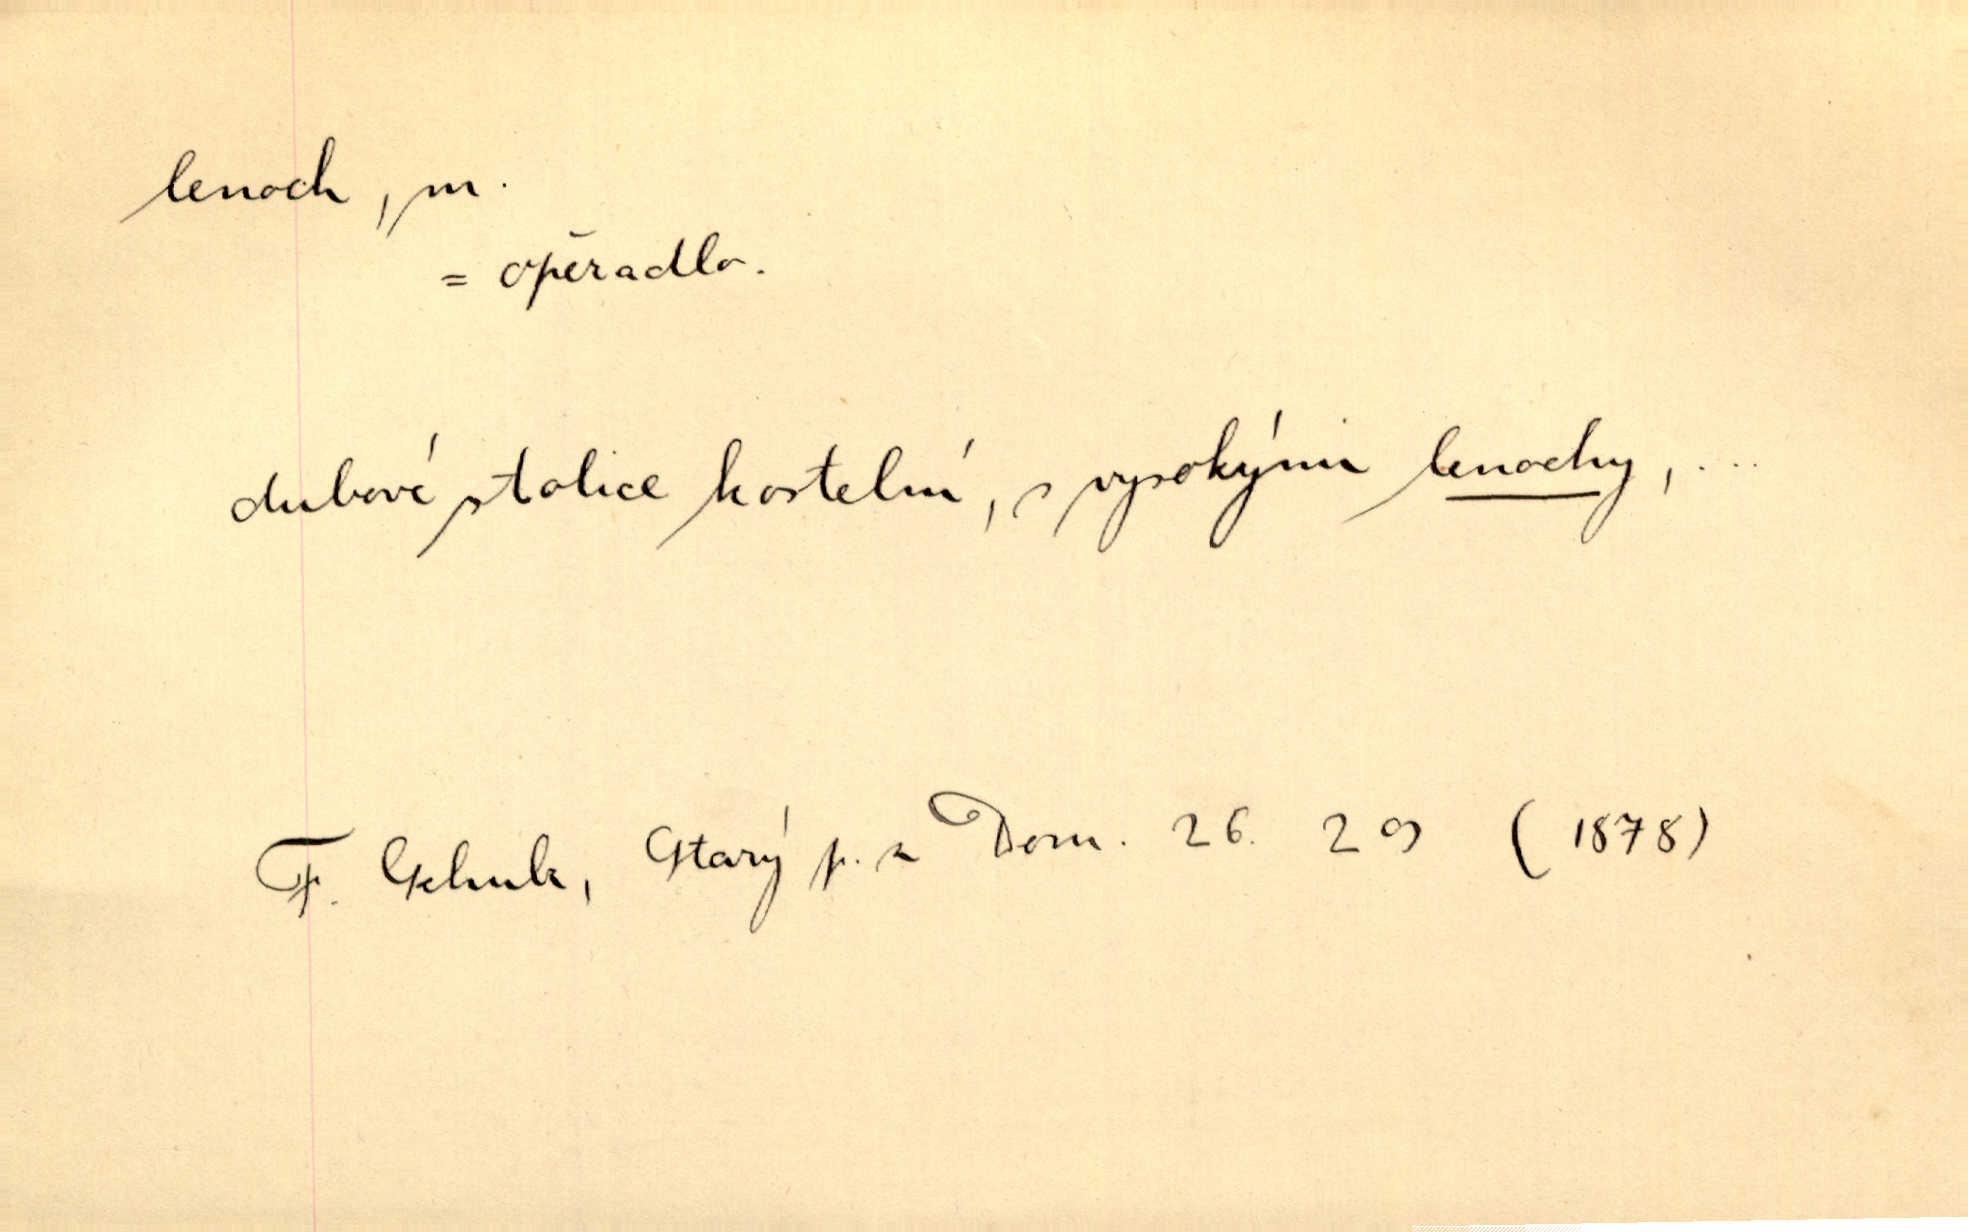 lenoch, m.
= opěradlo.
dubové stolice kostelní, s vysokými lenochy, ...
F. Schulz, Starý p. z Dom. 26. 29 (1878)